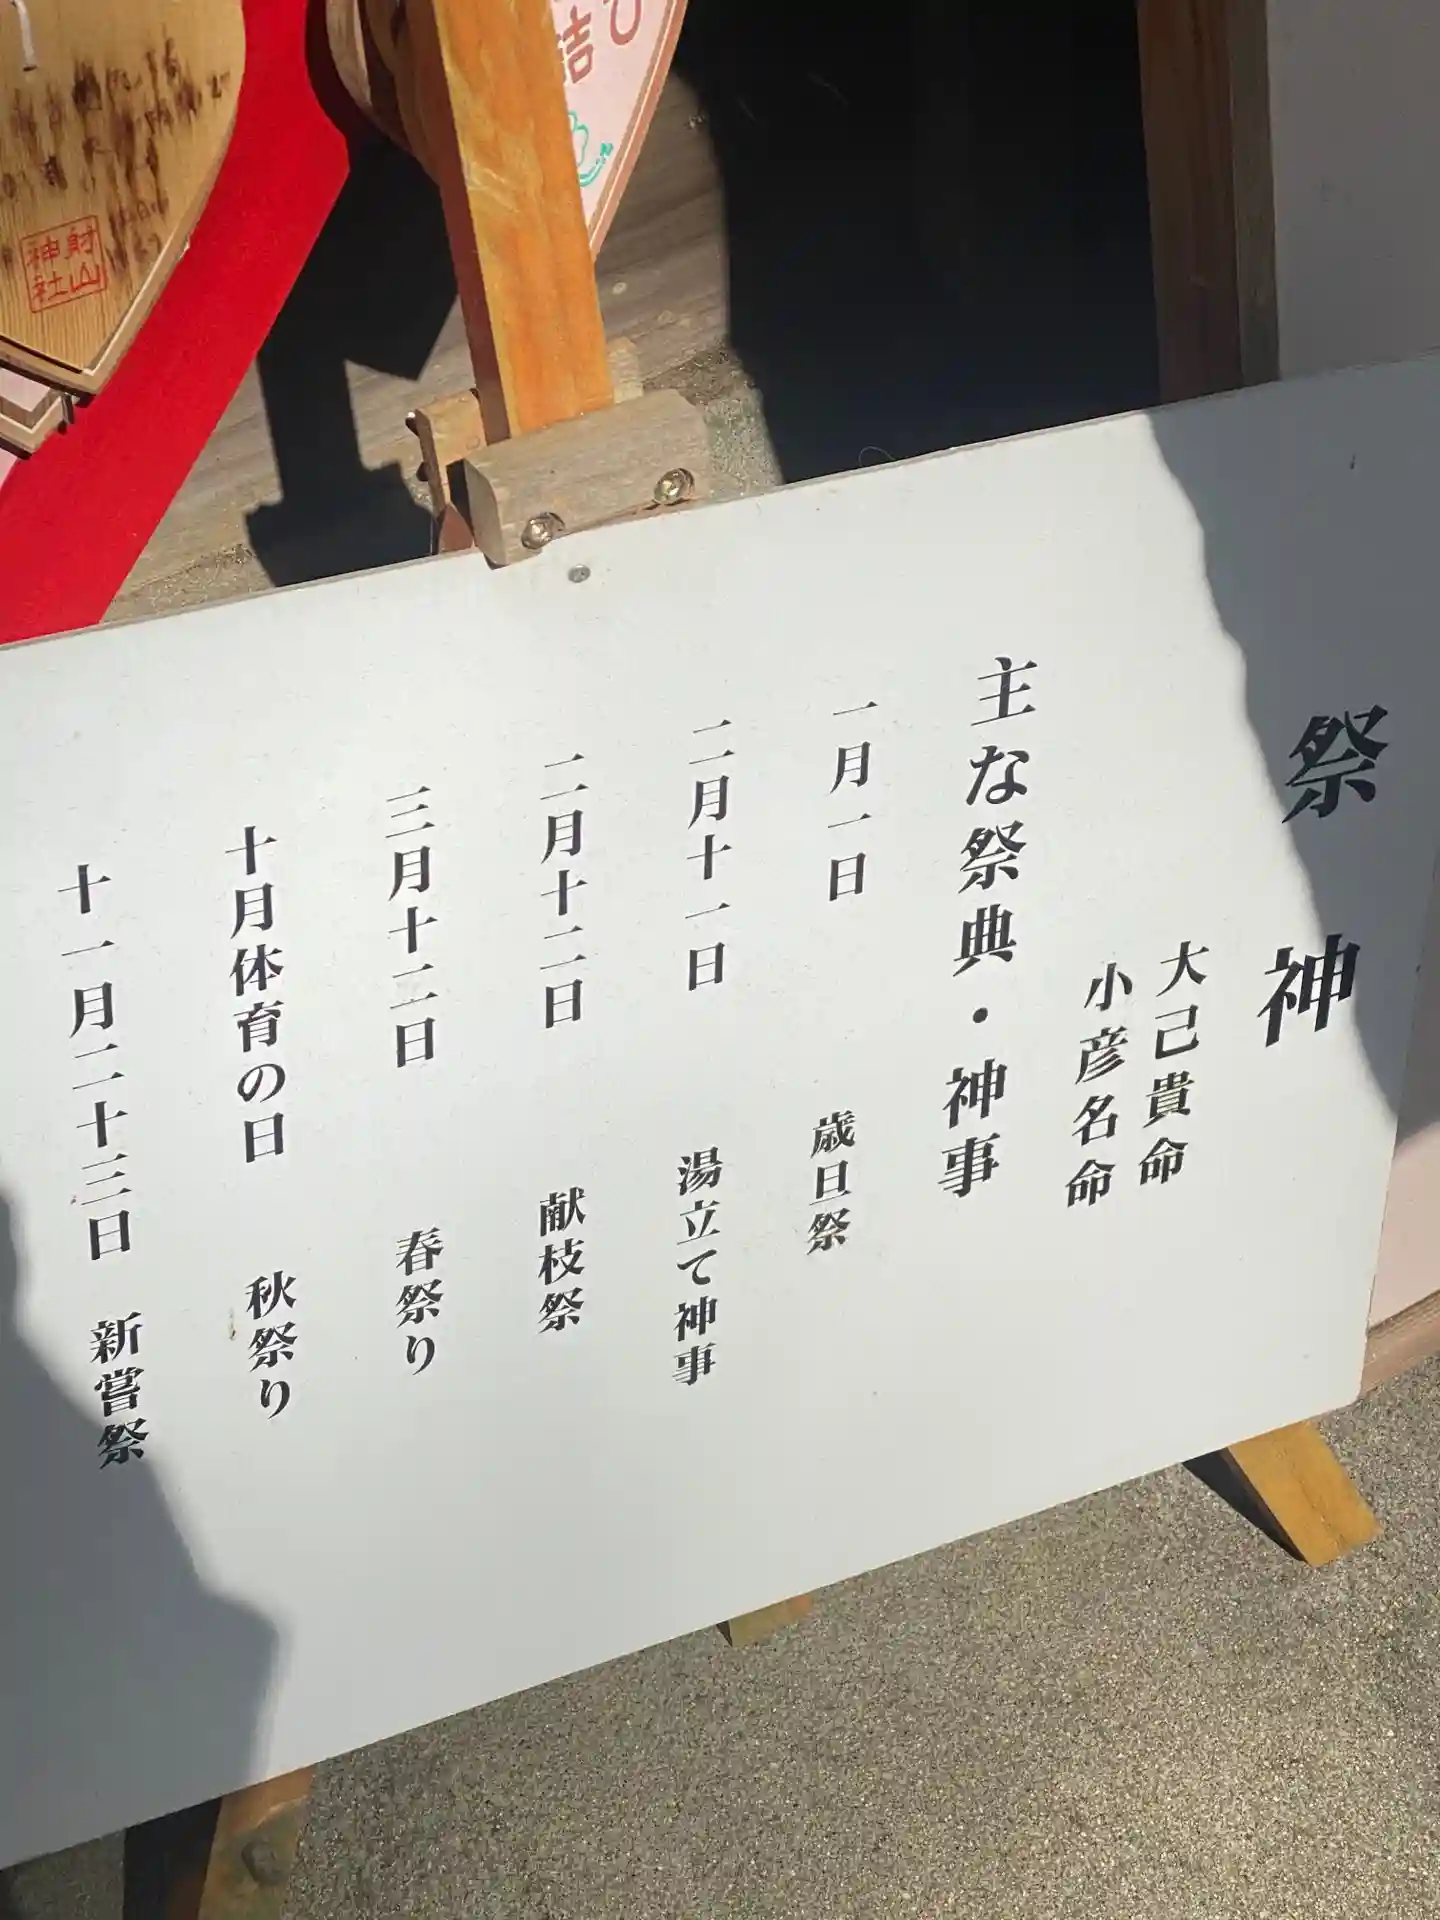 祭神
大己貴命
小彦名命
主な祭典・神事
一月一日 歳旦祭
二月十一日 湯立て神事
二月十二日 献枝祭
三月十二日 春祭り
十月体育の日 秋祭り
十一月二十三日 新嘗祭
財山
神社
詰